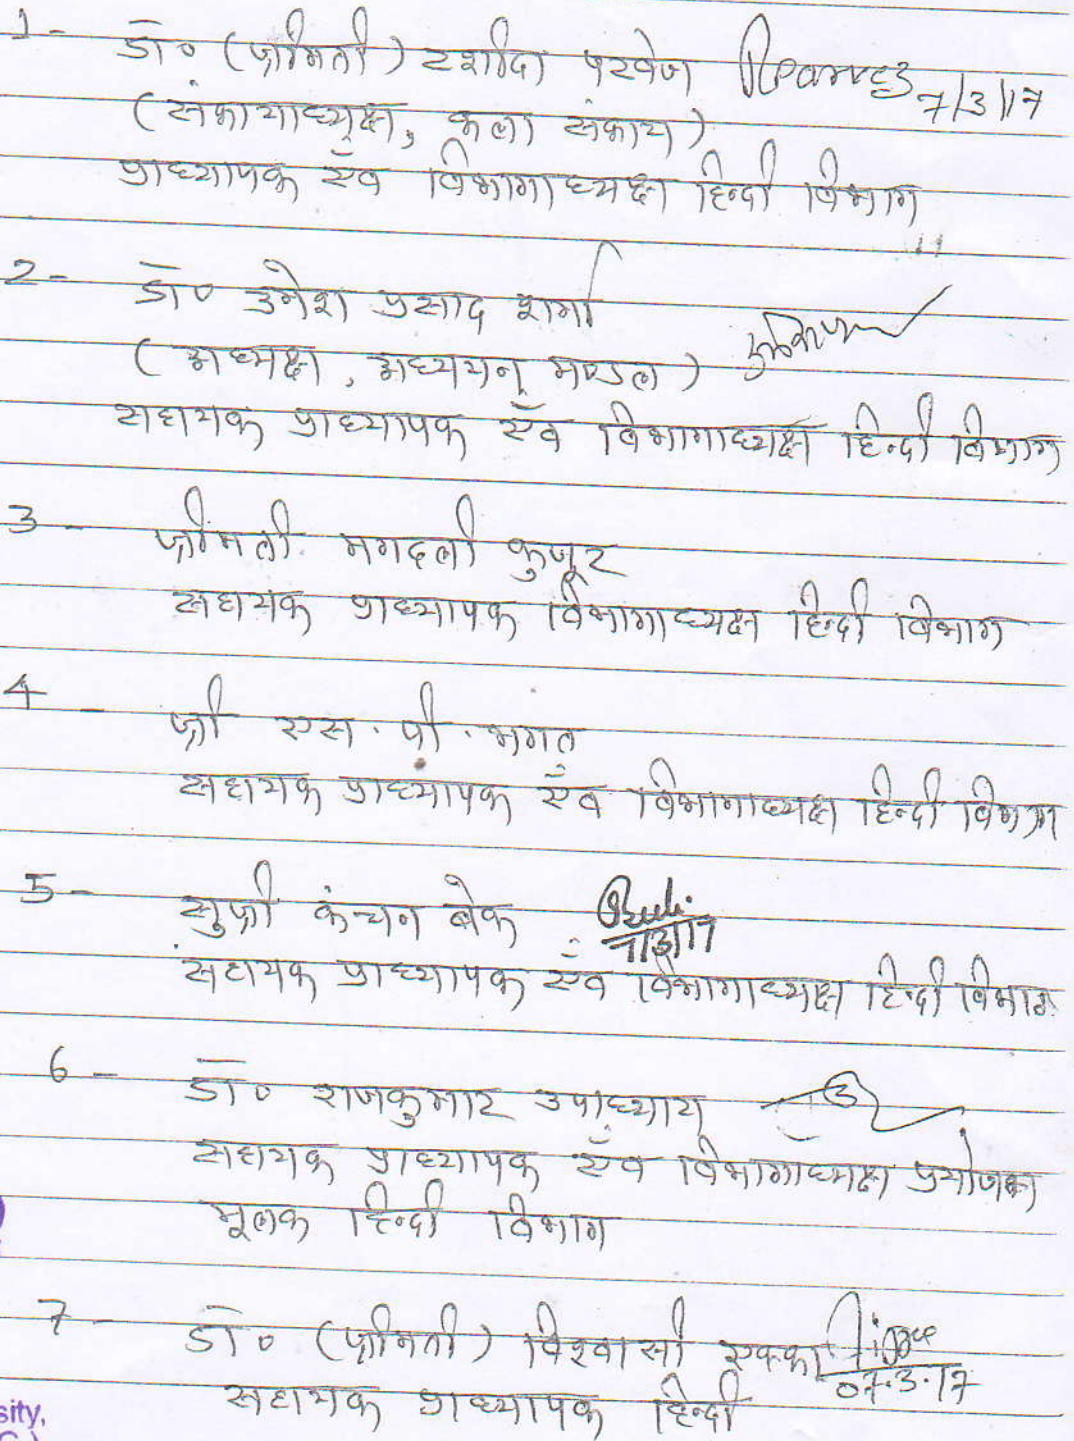 1- डॉ० (श्रीमती) रशीदा परवेज 7/3/17
(संकायाध्यक्ष, कला संकाय)
प्राध्यापक एँव विभागाध्यक्ष हिन्दी विभाग
''
2- डॉ० उमेश प्रसाद शर्मा
(अध्यक्ष, अध्ययन मण्डल)
सहायक प्राध्यापक एँव विभागाध्यक्ष हिन्दी विभाग
3 - श्रीमती मगदली कुजूर
सहायक प्राध्यापक विभागाध्यक्ष हिन्दी विभाग
4 - श्री एस. पी. भगत
सहायक प्राध्यापक एँव विभागाध्यक्ष हिन्दी विभाग
5 - सुश्री कंचन बेक 7/3/17
सहायक प्राध्यापक एँव विभागाध्यक्ष हिन्दी विभाग
6 - डॉ० राजकुमार उपाध्याय
सहायक प्राध्यापक एँव विभागाध्यक्ष प्रयोजन
मूलक हिन्दी विभाग
7 - डॉ० (श्रीमती) विश्वासी एक्का 07.3.17
सहायक प्राध्यापक हिन्दी
sity,